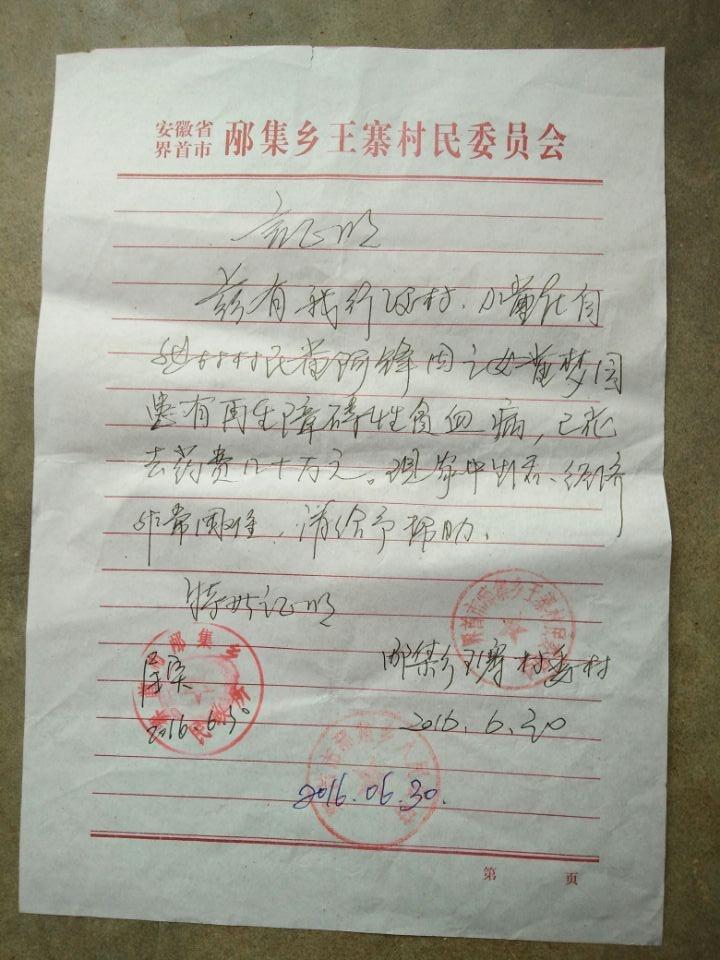 安徽省
界首市
邴集乡王寨村民委员会
证明
兹有我行政村、小董庄自
村村民董阿锋因之女董梦园
患有再生障碍性贫血病，已花
去药费几十万元。现家中
非常困难，请给予帮助。
特此证明
属实
邴集乡王寨村委村
2016.6.30
2016.6.30
2016.06.30.
第 页